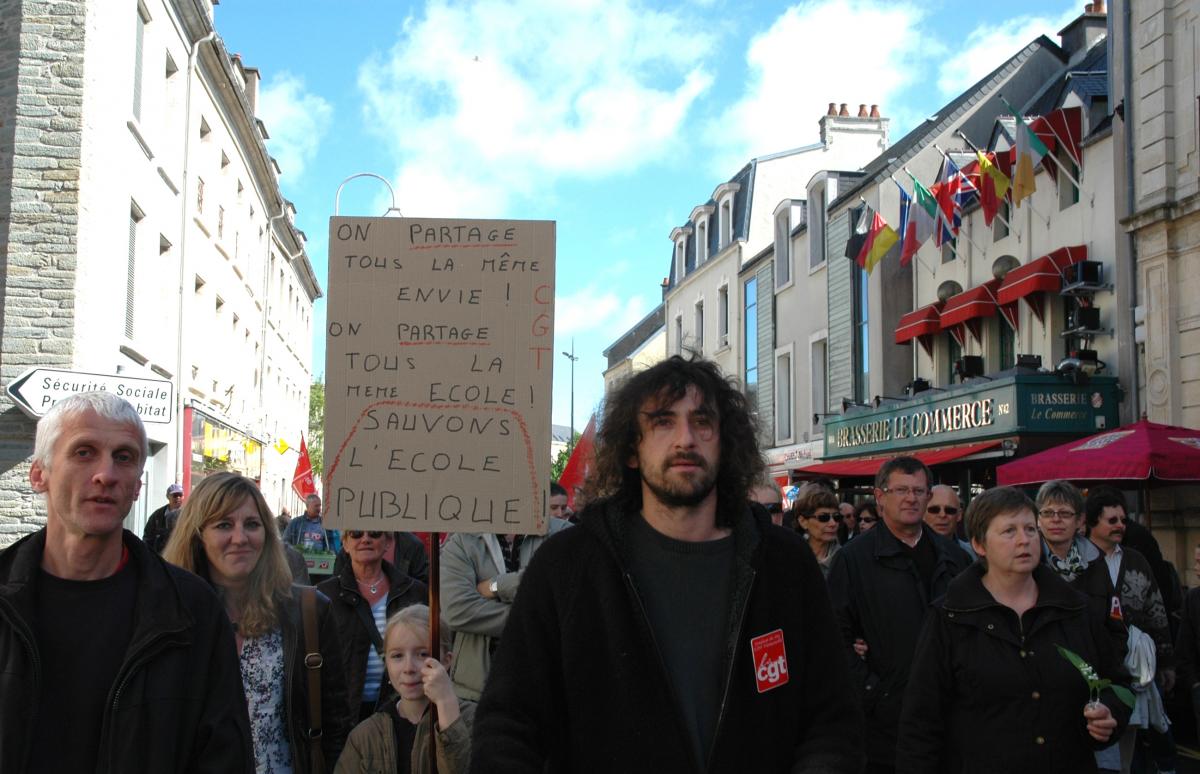 ON PARTAGE
TOUS LA MÊME
ENVIE !
ON PARTAGE
TOUS LA
MEME ECOLE !
SAUVONS
L'ECOLE
PUBLIQUE !
CGT
Sécurité Sociale
BRASSERIE LE COMMERCE N°2
BRASSERIE
Le Commerce
la
cgt